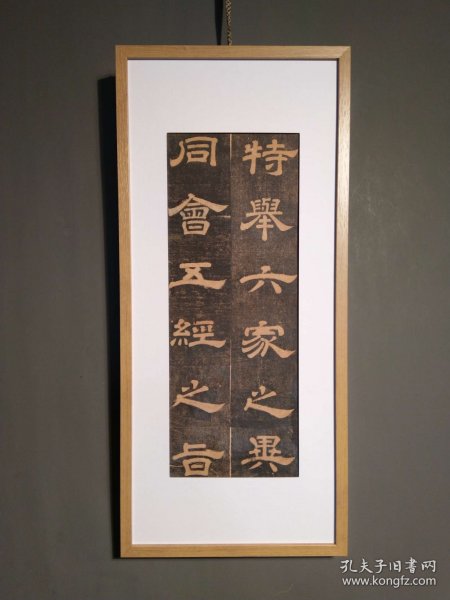 特舉六家之異
同會五經之旨
孔夫子旧书网
www.kongfz.com